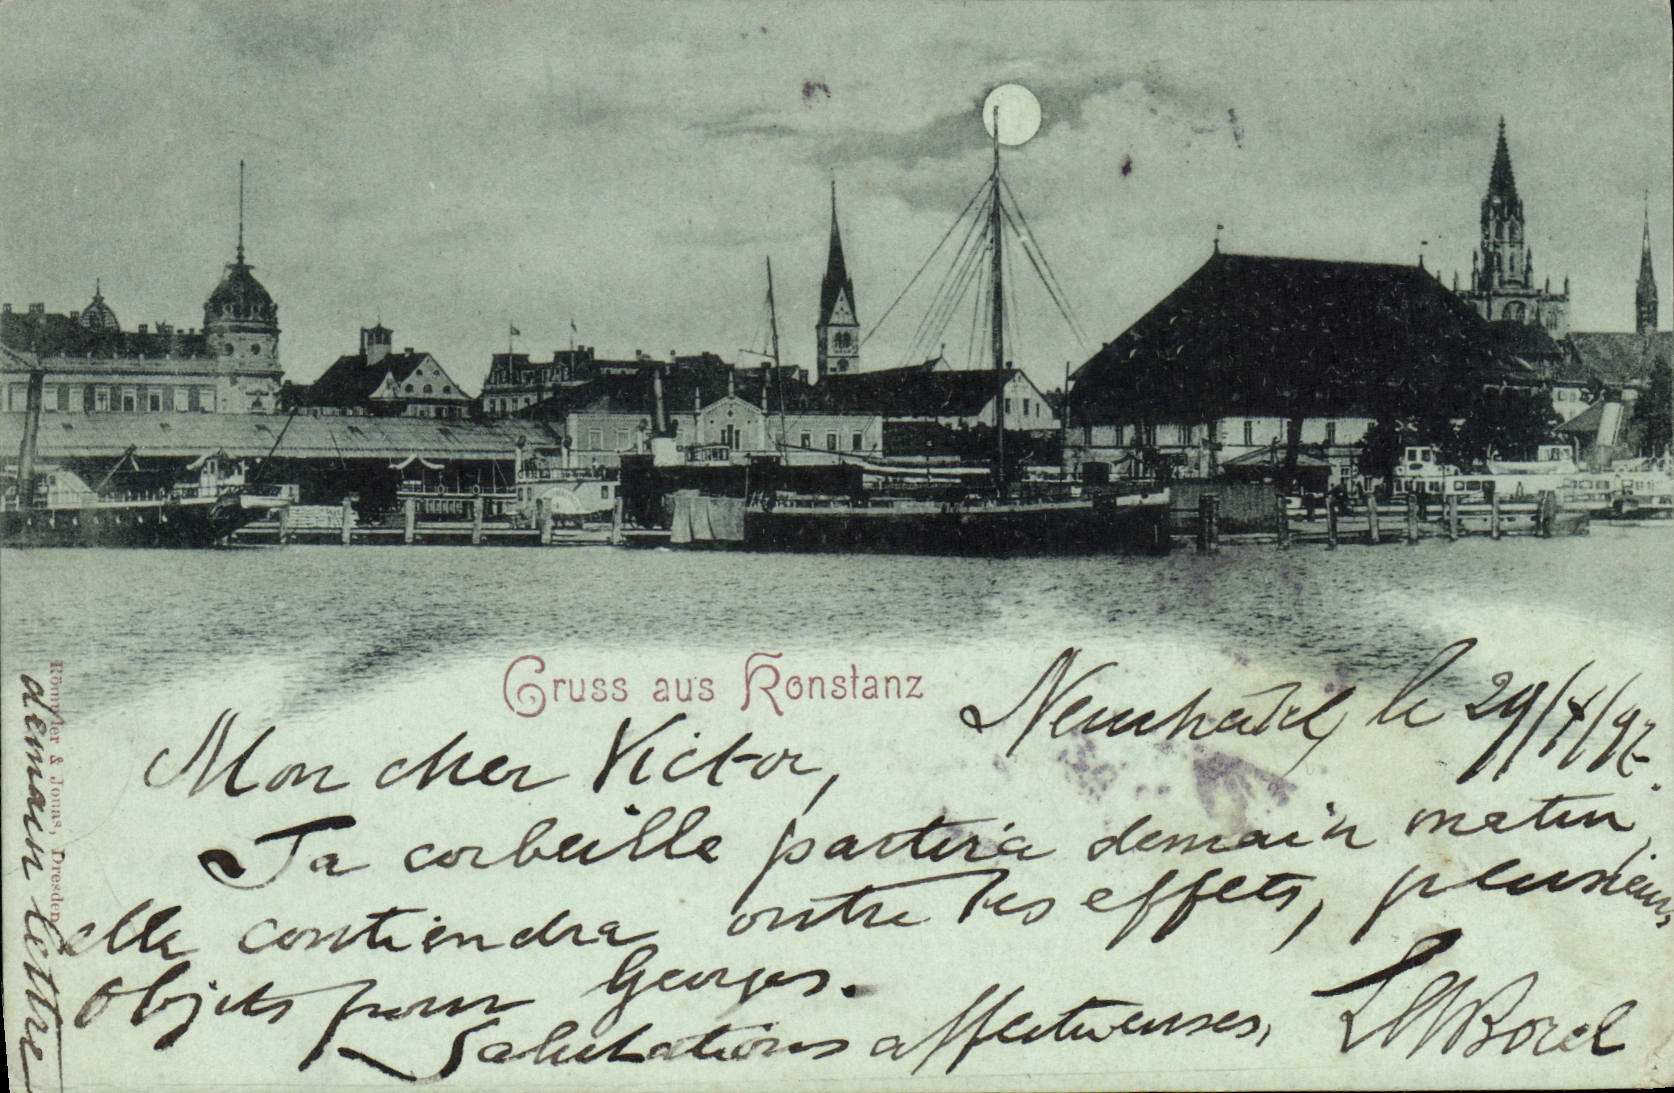 Gruss aus Konstanz
Neuchâtel, le 29/X/97.
Mon cher Victor,
Ta corbeille partira demain matin,
elle contiendra outre tes effets, plusieurs
objets pour Georges.
Salutations affectueuses,
Borel
demain lettre
Römmler & Jonas, Dresden